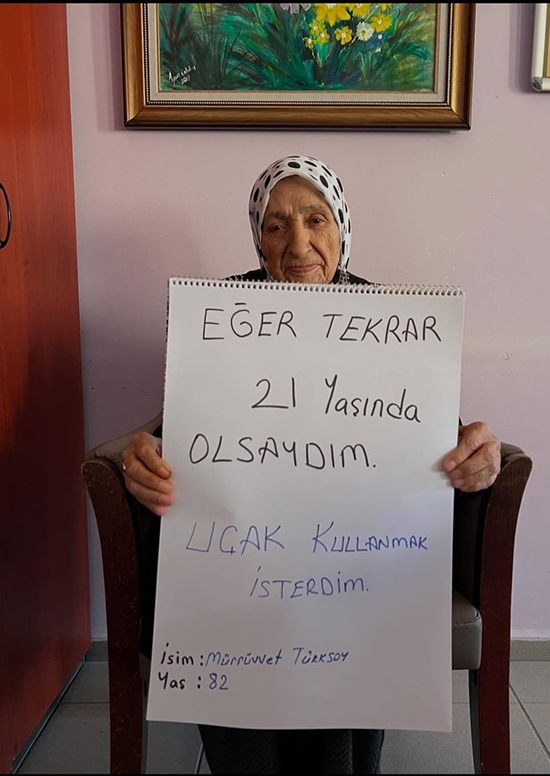 EĞER TEKRAR
21 Yaşında
OLSAYDIM.
UÇAK KULLANMAK
İSTERDİM.
İsim : Mürrüvvet TÜRKSOY
Yaş : 82